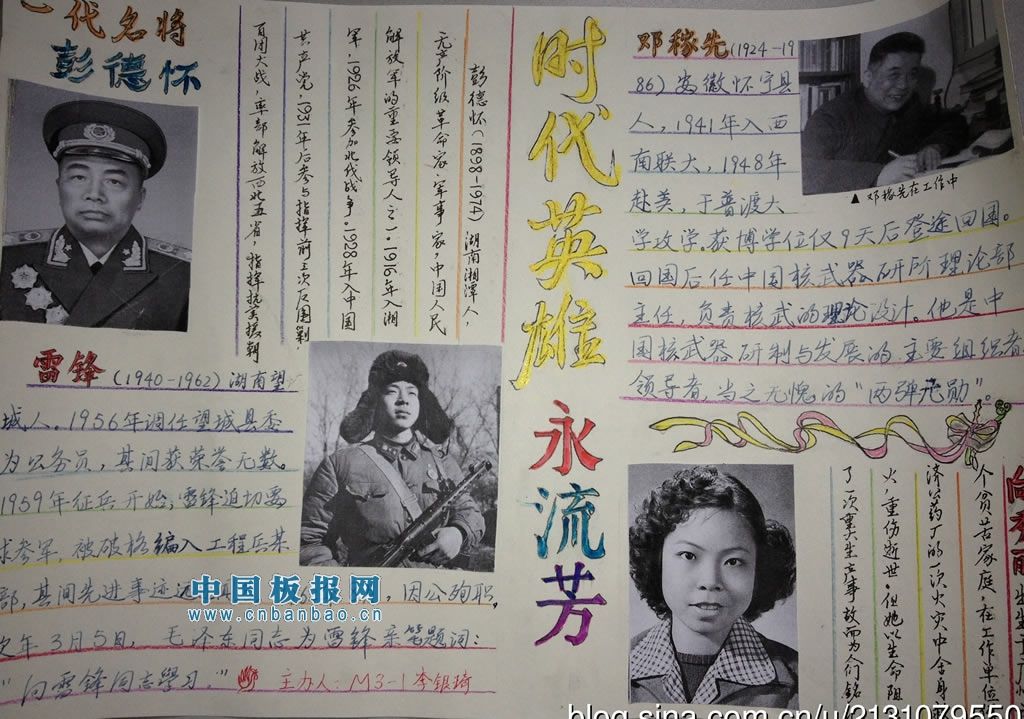 一代名将
彭德怀
彭德怀(1898-1974)湖南湘潭人，
无产阶级革命家、军事家，中国人民
解放军的重要领导人之一。1916年入湘
军，1926年参加北伐战争，1928年入中国
共产党，1931年后参与指挥前三次反围剿，
百团大战，率部解放西北五省，指挥抗美援朝
时代英雄
永流芳
邓稼先(1924-19
86)安徽怀宁县
人，1941年入西
南联大，1948年
赴美，于普渡大
学攻学。获博学位仅9天后登途回国。
回国后任中国核武器研所理论部
主任，负责核武的理论设计。他是中
国核武器研制与发展的主要组织者
领导者，当之无愧的“两弹元勋”。
▲邓稼先在工作中
雷锋(1940-1962)湖南望
城人。1956年调任望城县委
为公务员，其间获荣誉无数。
1959年征兵开始，雷锋迫切要
求参军，被破格编入工程兵某
部，其间先进事迹
，因公殉职，
次年3月5日，毛泽东同志为雷锋亲笔题词：
“向雷锋同志學习。”
主办人：M3-1李银琦
向秀丽
出生于广州
个贫苦家庭，在工作单位
济公药厂的一次火灾中舍身
火，重伤逝世，但她以生命阻
了一次重大生产事故而为人们铭
中国板报网
www.cnbanbao.cn
blog.sina.com.cn/u/2131079550